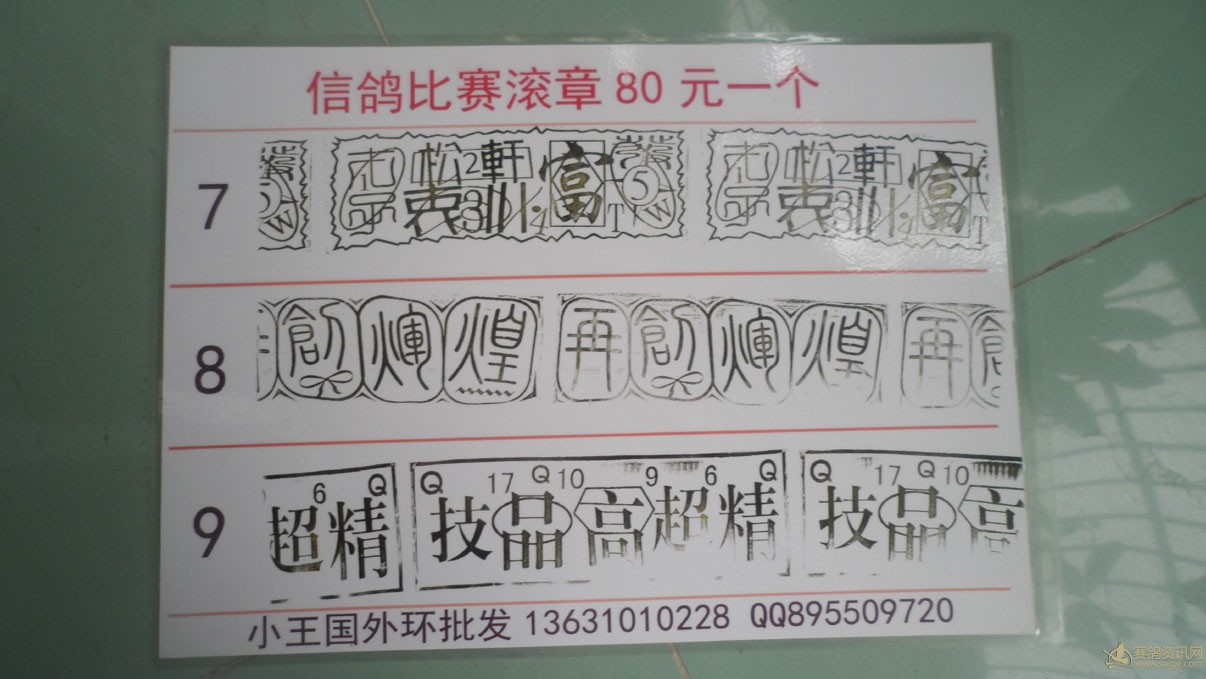 信鸽比赛滚章 80 元一个
7
松 2 軒 富 5
袁 3
松 2 軒 富
袁 3
8
創輝煌 再創輝煌 再創
9
6 Q Q 17 Q 10 9 6 Q Q 17 Q 10
超精 技品高超精 技品高
小王国外环批发 13631010228 QQ895509720
赛鸽资讯网
www.saige.com